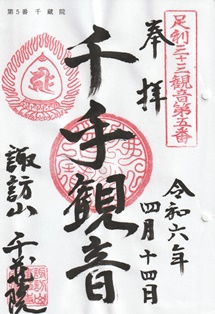 第5番 千蔵院
足利三十三観音第五番
奉拝
千手観音
令和六年
四月十四日
諏訪山 千蔵院